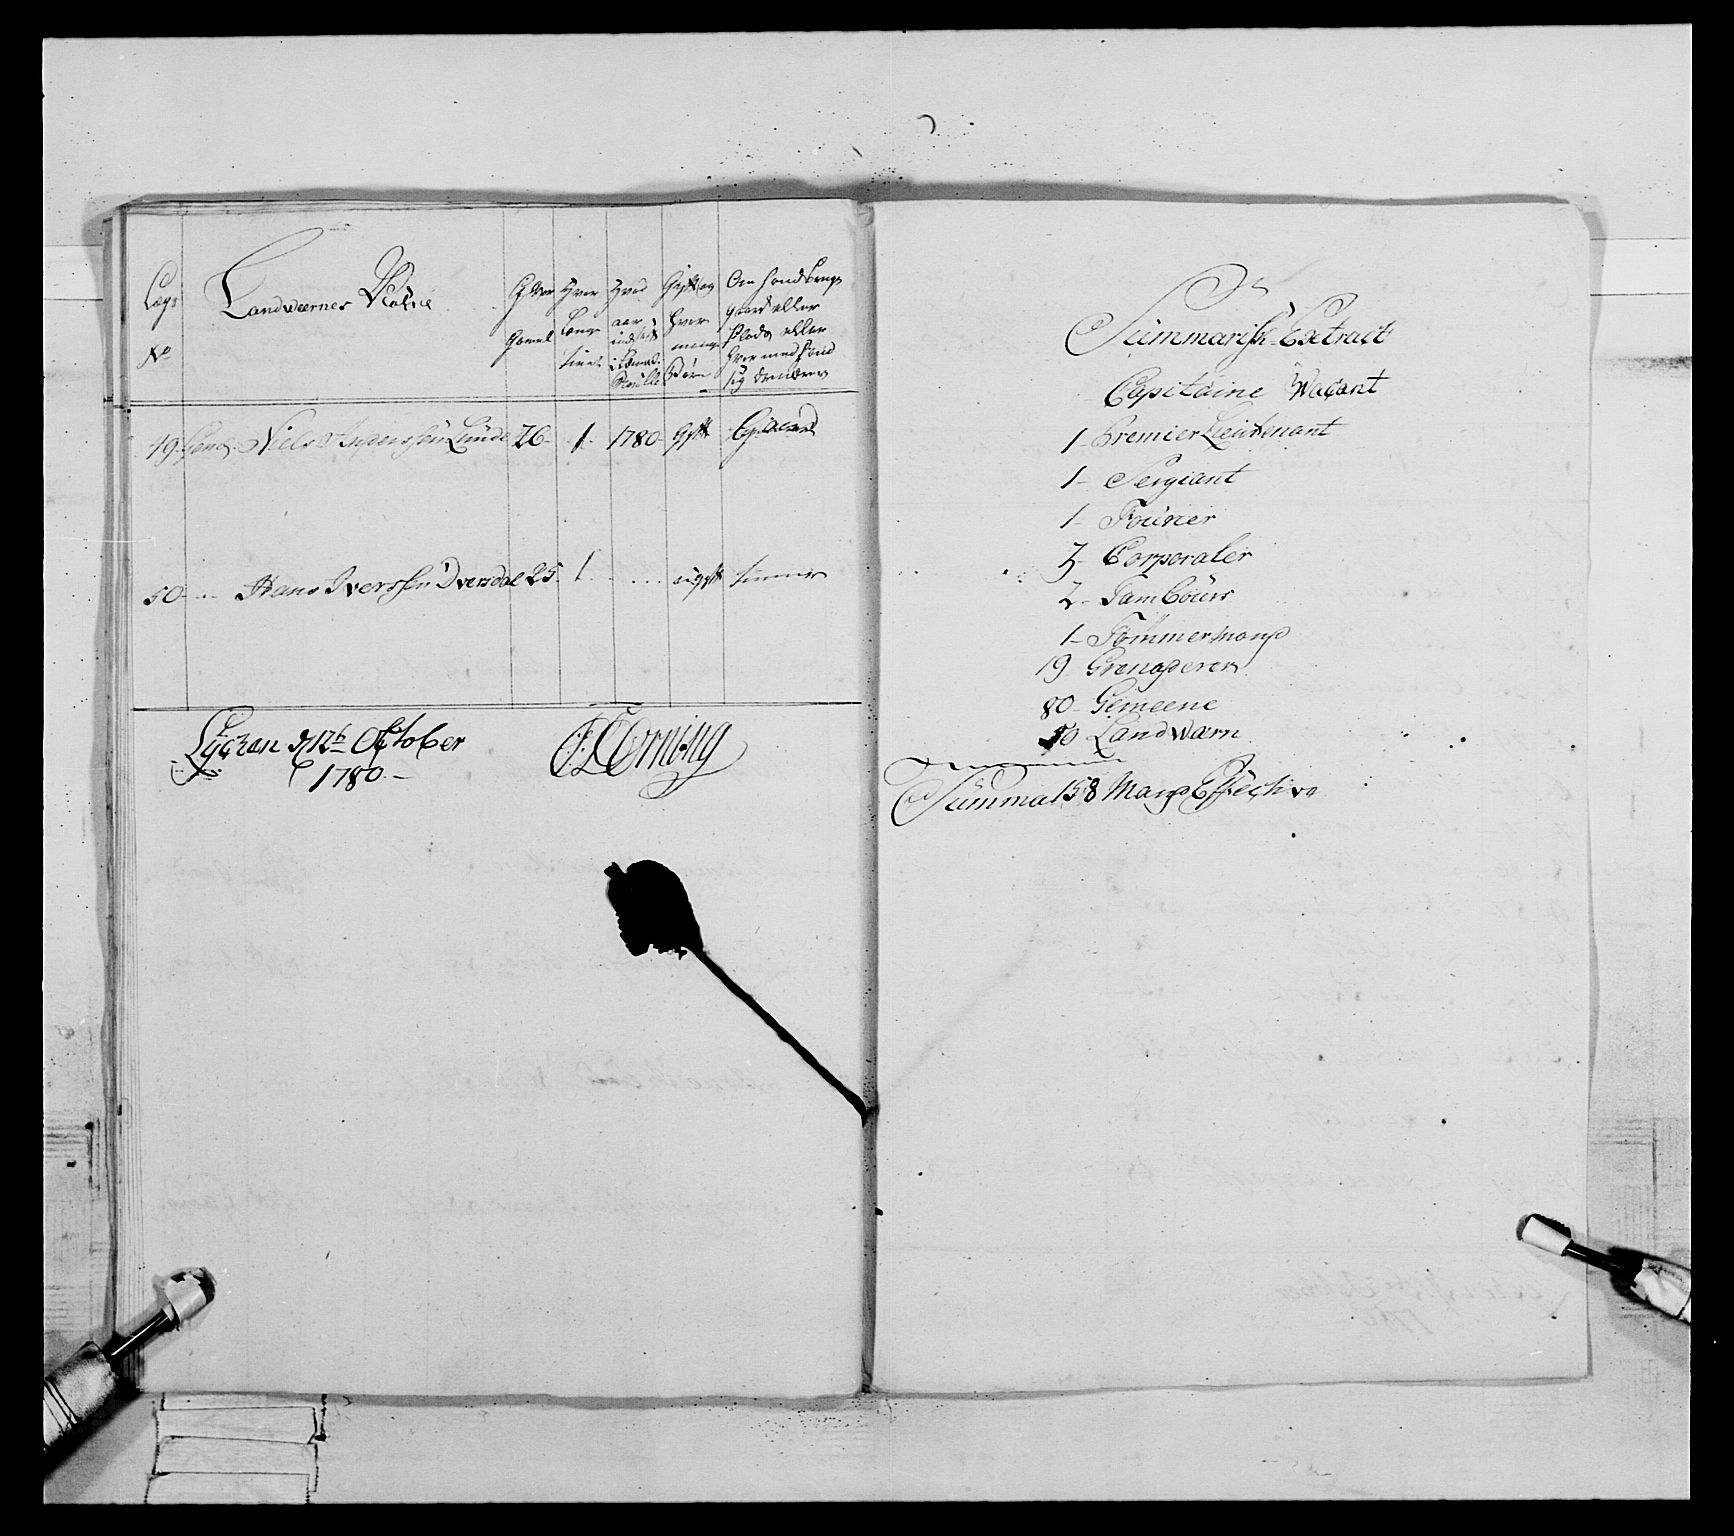 Lægs
No
Landværnes Nafne
Alder
Gamel
Hvor
længe
tient
Hvad
aar
indskr
i Land
Rulle
Gift og
hvor
mange
Børn
Om hand bruger
gaard eller
Plads eller
hvor med hand
sig ernærer
19 Land. Niels Anderssen Lunde 26 1 1780 gift
50 Hans Iverssen Iversdal 25 1 ugift tiener
Lychen d. 12th October
1780
Summarisk Extract
Capitaine Vacant
1 Premier Lieutenant
1 Sergiant
1 Fourier
3 Corporaler
2 Tambours
1 Tømmermand
19 Grenaderer
80 Gemeene
50 Landværn
Summa 158 Mand Effective